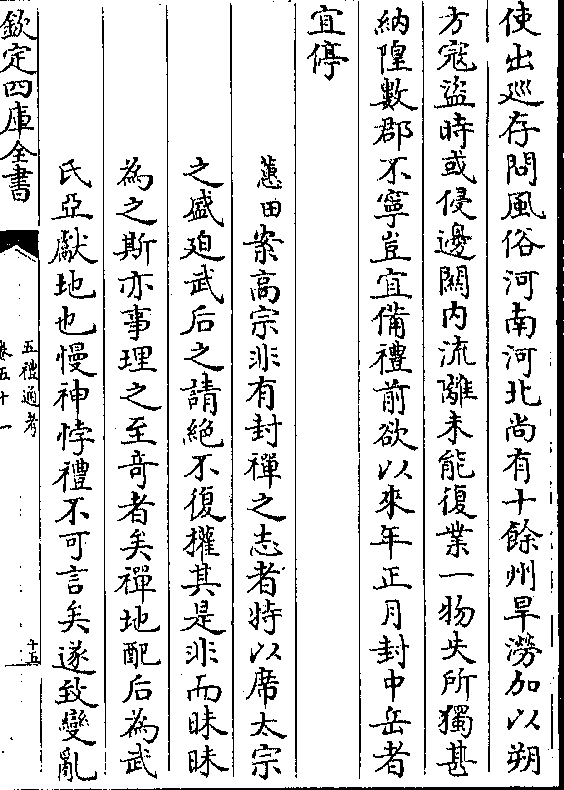 使出巡存問風俗河南河北尚有十餘州旱澇加以朔
方寇盜時或侵邊關內流離未能復業一物失所獨甚
納隍數郡不寧豈宜備禮前欲以來年正月封中岳者
宜停
蕙田案高宗非有封禪之志者特以席太宗
之盛廹武后之請絶不復搉其是非而昧昧
為之斯亦事理之至竒者矣禪地配后為武
氏亞獻地也慢神悖禮不可言矣遂致變亂
欽定四庫全書
五禮通考
卷五十一
十五